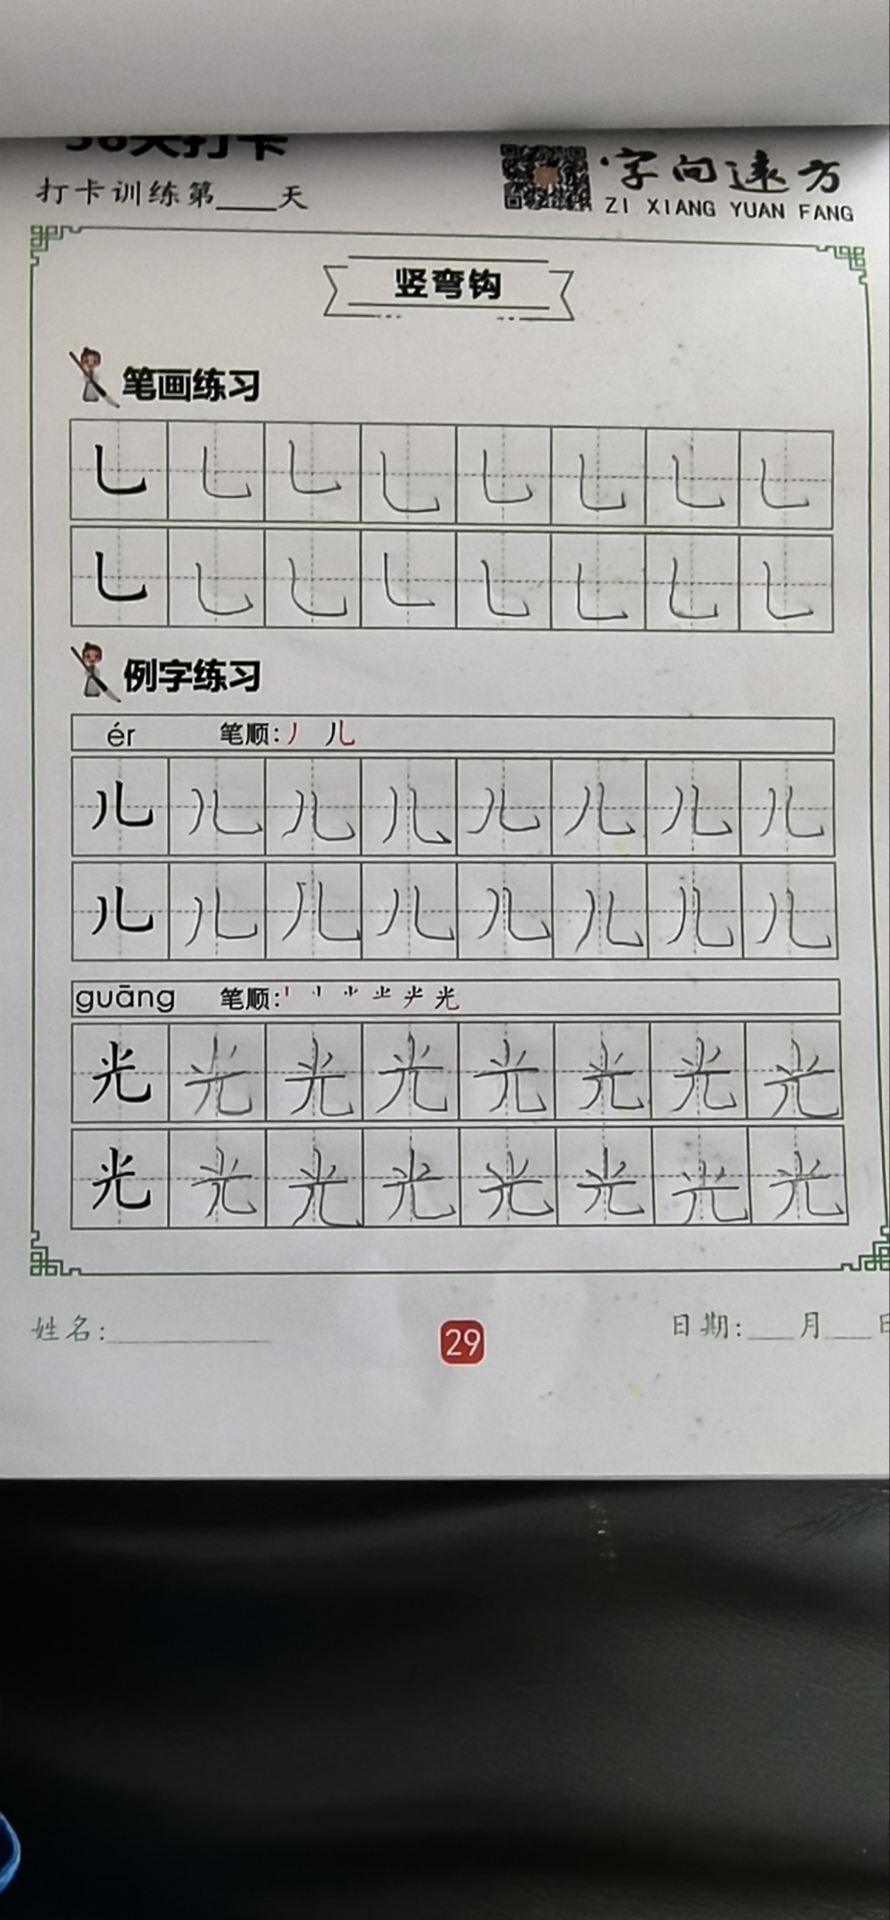 36天打卡
打卡训练第____天
字向远方
ZI XIANG YUAN FANG
竖弯钩
笔画练习
乚 乚 乚 乚 乚 乚 乚 乚
乚 乚 乚 乚 乚 乚 乚 乚
例字练习
ér 笔顺: 丿 儿
儿 儿 儿 儿 儿 儿 儿 儿
儿 儿 儿 儿 儿 儿 儿 儿
guāng 笔顺: 光
光 光 光 光 光 光 光 光
光 光 光 光 光 光 光 光
姓名:__________ 日期:___月___日
29